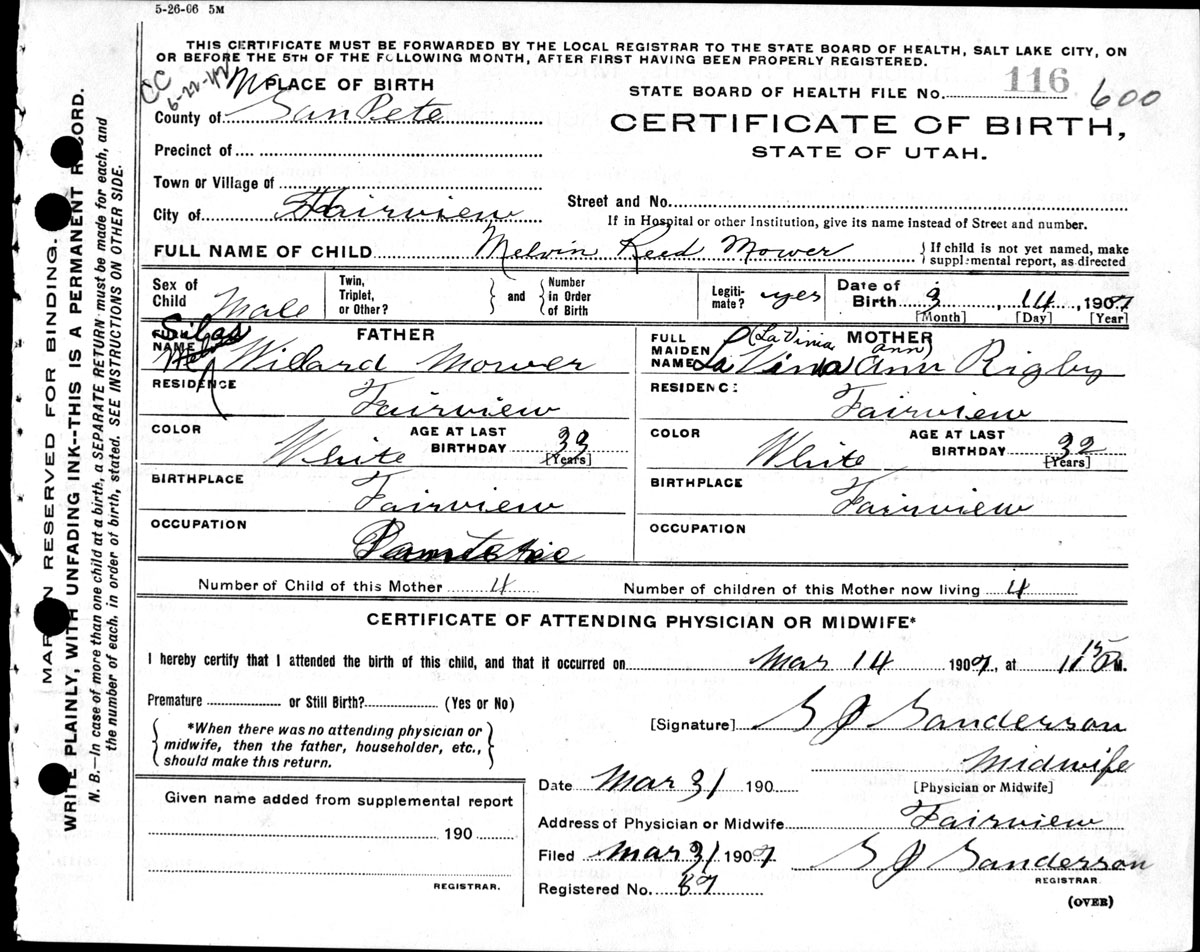 5-26-06 5M
THIS CERTIFICATE MUST BE FORWARDED BY THE LOCAL REGISTRAR TO THE STATE BOARD OF HEALTH, SALT LAKE CITY, ON
OR BEFORE THE 5TH OF THE FOLLOWING MONTH, AFTER FIRST HAVING BEEN PROPERLY REGISTERED.
CC
6-22-42
PLACE OF BIRTH
County of SanPete
Precinct of
Town or Village of
City of Fairview
STATE BOARD OF HEALTH FILE No. 116 600
CERTIFICATE OF BIRTH,
STATE OF UTAH.
Street and No.
If in Hospital or other Institution, give its name instead of Street and number.
FULL NAME OF CHILD Melvin Reed Mower
{If child is not yet named, make
supplemental report, as directed
Sex of
Child Male
Twin,
Triplet,
or Other?
} and {
Number
in Order
of Birth
Legiti-
mate? yes
Date of
Birth 3 14, 1907
[Month] [Day] [Year]
FATHER
FULL
NAME Silas Willard Mower
RESIDENCE Fairview
COLOR White
AGE AT LAST
BIRTHDAY 33
[Years]
BIRTHPLACE Fairview
OCCUPATION
MOTHER
(La Vinia Ann)
FULL
MAIDEN
NAME La Vina Ann Rigby
RESIDENCE Fairview
COLOR White
AGE AT LAST
BIRTHDAY 32
[Years]
BIRTHPLACE Fairview
OCCUPATION
Number of Child of this Mother 4
Number of children of this Mother now living 4
CERTIFICATE OF ATTENDING PHYSICIAN OR MIDWIFE*
I hereby certify that I attended the birth of this child, and that it occurred on Mar 14 1907, at 11 15 P M.
Premature or Still Birth? (Yes or No)
{*When there was no attending physician or
midwife, then the father, householder, etc.,
should make this return.}
[Signature] S J Sanderson
Midwife
[Physician or Midwife]
Date Mar 31 190
Given name added from supplemental report
190
REGISTRAR.
Address of Physician or Midwife Fairview
Filed Mar 31 1907 S J Sanderson
REGISTRAR
Registered No. 87
(OVER)
MARGIN RESERVED FOR BINDING.
WRITE PLAINLY, WITH UNFADING INK--THIS IS A PERMANENT RECORD.
N. B.—In case of more than one child at a birth, a SEPARATE RETURN must be made for each, and
the number of each, in order of birth, stated. SEE INSTRUCTIONS ON OTHER SIDE.